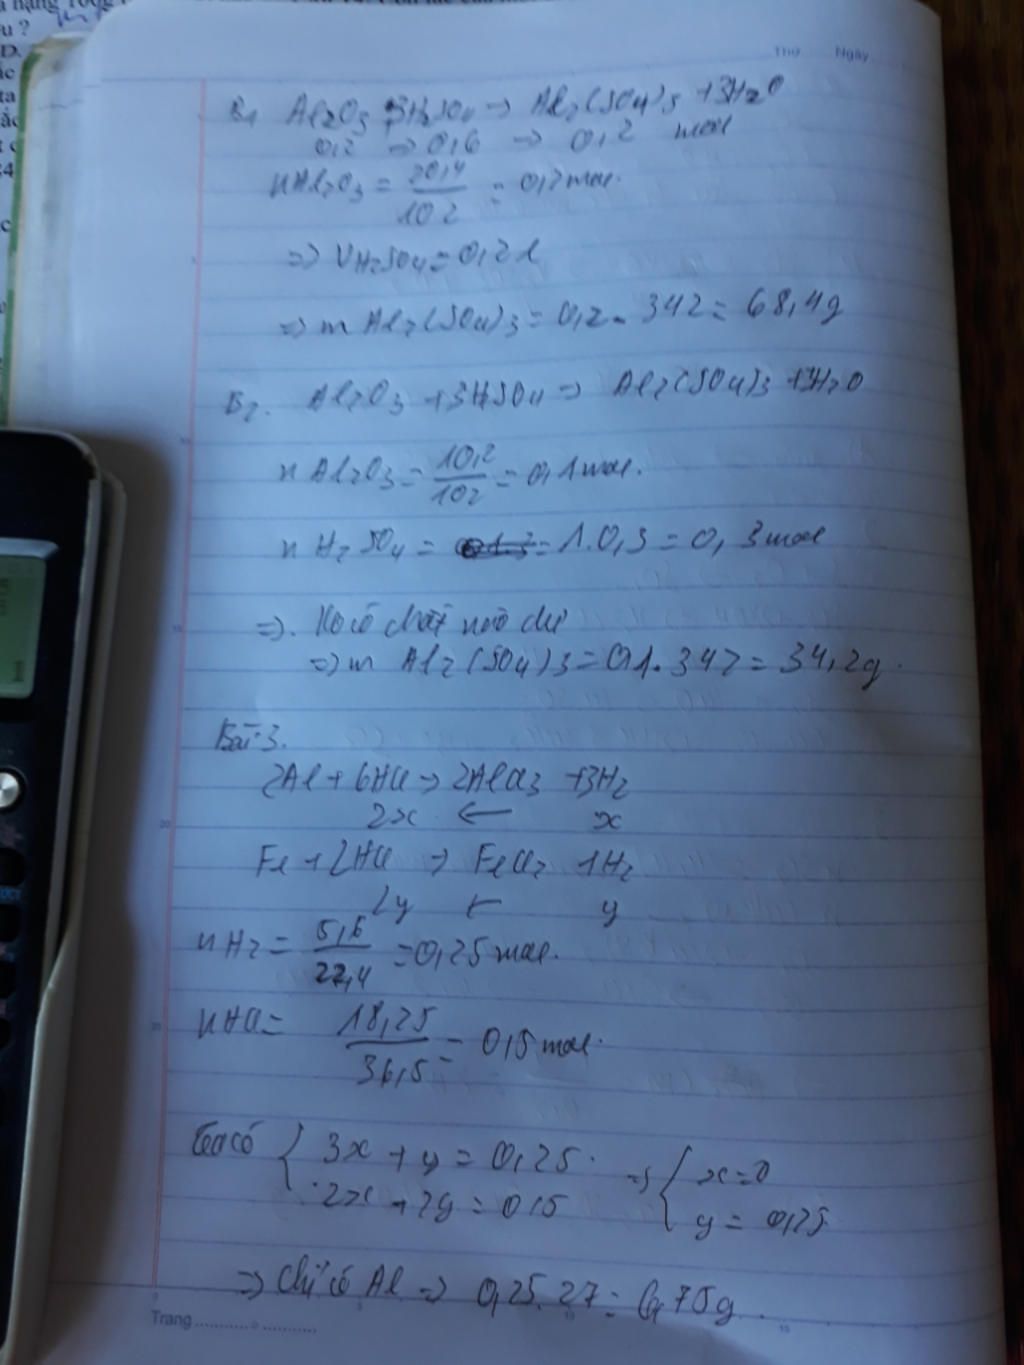 Thứ Ngày
B1 Al2O3 + 3H2SO4 → Al2(SO4)3 + 3H2O
0,2 → 0,6 → 0,2 mol
nAl2O3 = 20,4/102 = 0,2 mol.
=> VH2SO4 = 0,2 l
=> m Al2(SO4)3 = 0,2. 342 = 68,4g
B2. Al2O3 + 3H2SO4 => Al2(SO4)3 + 3H2O
n Al2O3 = 10,2/102 = 0,1 mol.
n H2SO4 = 1.0,3 = 0,3 mol
=>. Ko có chất nào dư
=> m Al2(SO4)3 = 0,1. 342 = 34,2g.
Bài 3.
2Al + 6HCl → 2AlCl3 + 3H2
2x ← x
Fe + 2HCl → FeCl2 + H2
2y ← y
nH2 = 5,6/22,4 = 0,25 mol.
nHCl = 18,25/36,5 = 0,5 mol.
Ta có { 3x + y = 0,25. => { x = 0
2x + 2y = 0,5 y = 0,25
=> Chỉ có Al => 0,25.27 = 6,75g.
Trang